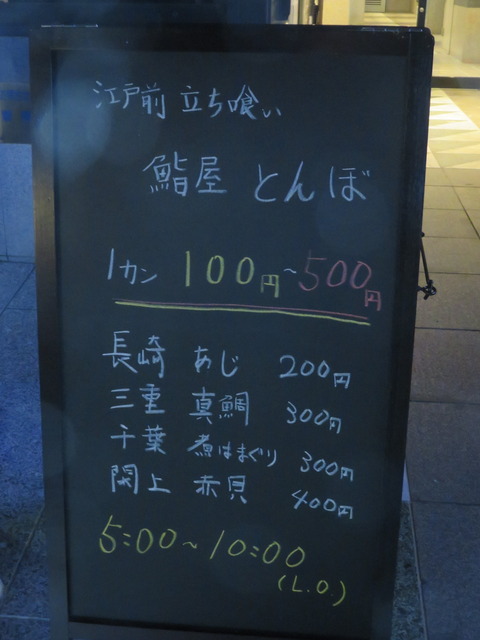 江戸前 立ち喰い
鮨屋 とんぼ
1カン 100円~500円
長崎 あじ 200円
三重 真鯛 300円
千葉 煮はまぐり 300円
閖上 赤貝 400円
5:00~10:00
(L.O.)